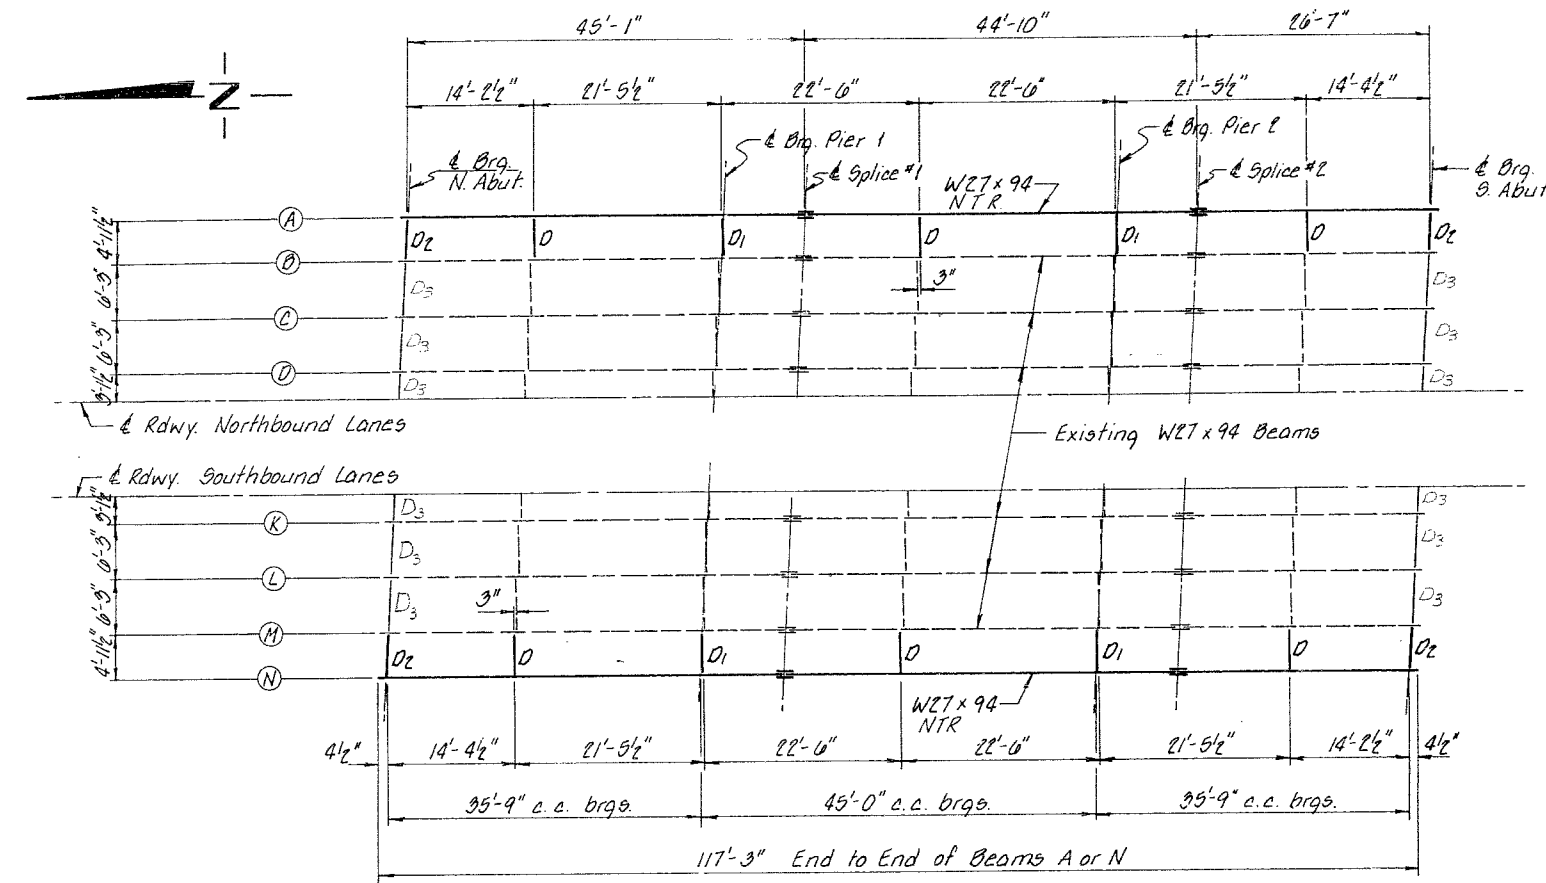 45'-1" 44'-10" 26'-7"
14'-2½" 21'-5½" 22'-6" 22'-6" 21'-5½" 14'-4½"
N
℄ Brg.
N. Abut.
℄ Brg. Pier 1
℄ Splice #1
W27 x 94
NTR
℄ Brg. Pier 2
℄ Splice #2
℄ Brg.
S. Abut
4'-11½" A
D2 D D1 D D1 D D2
B
6'-3" D3 3" D3
C
6'-3" D3 D3
D
3'-1½" D3 D3
℄ Rdwy. Northbound Lanes
Existing W27 x 94 Beams
℄ Rdwy. Southbound Lanes
3'-1½" D3 D3
K
6'-3" D3 D3
L
6'-3" D3 3" D3
M
4'-11½" D2 D D1 D D1 D D2
N
W27 x 94
NTR
4½" 14'-4½" 21'-5½" 22'-6" 22'-6" 21'-5½" 14'-2½" 4½"
35'-9" c.c. brgs. 45'-0" c.c. brgs. 35'-9" c.c. brgs.
117'-3" End to End of Beams A or N